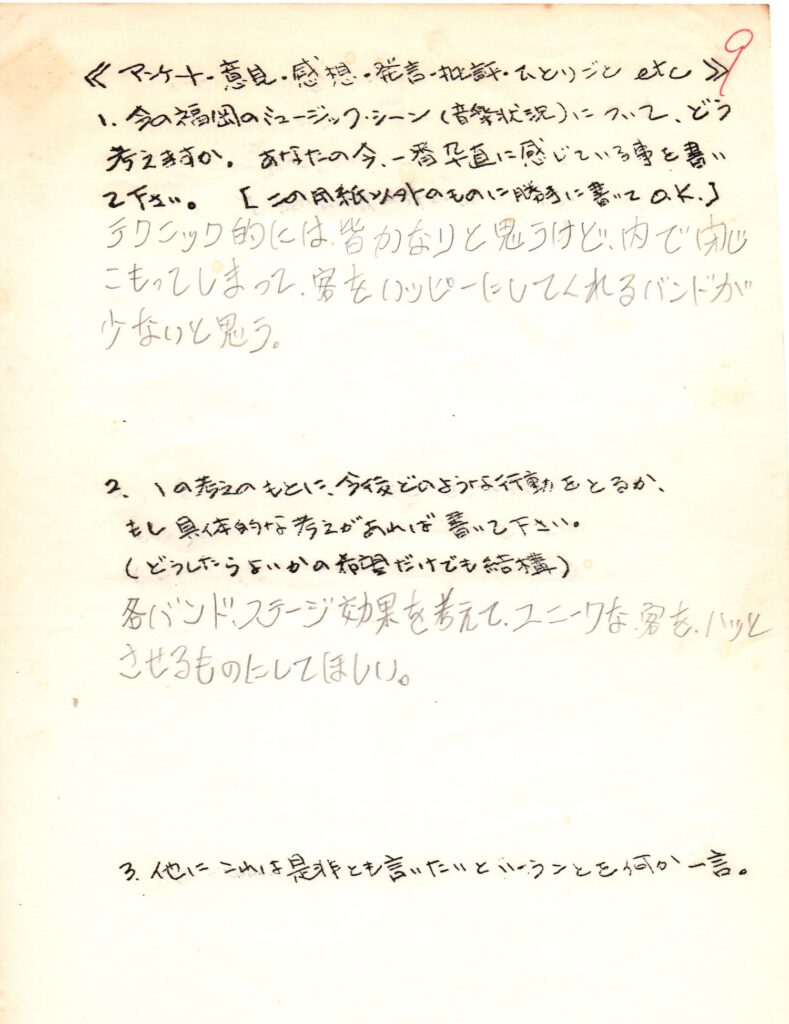 9
≪アンケート・意見・感想・発言・批評・ひとりごと etc≫
1. 今の福岡のミュージック・シーン（音楽状況）について、どう
考えますか。あなたの今、一番卒直に感じている事を書い
て下さい。 [この用紙以外のものに勝手に書いて O.K.]
テクニック的には、皆かなりと思うけど、内で閉じ
こもってしまって、客をハッピーにしてくれるバンドが
少ないと思う。
2. 1の考えのもとに、今後どのような行動をとるか、
もし具体的な考えがあれば書いて下さい。
(どうしたらよいかの希望だけでも結構)
各バンド、ステージ効果を考えて、ユニークな、客を、ハッと
させるものにしてほしい。
3. 他にこれは是非とも言いたいということを何か一言。